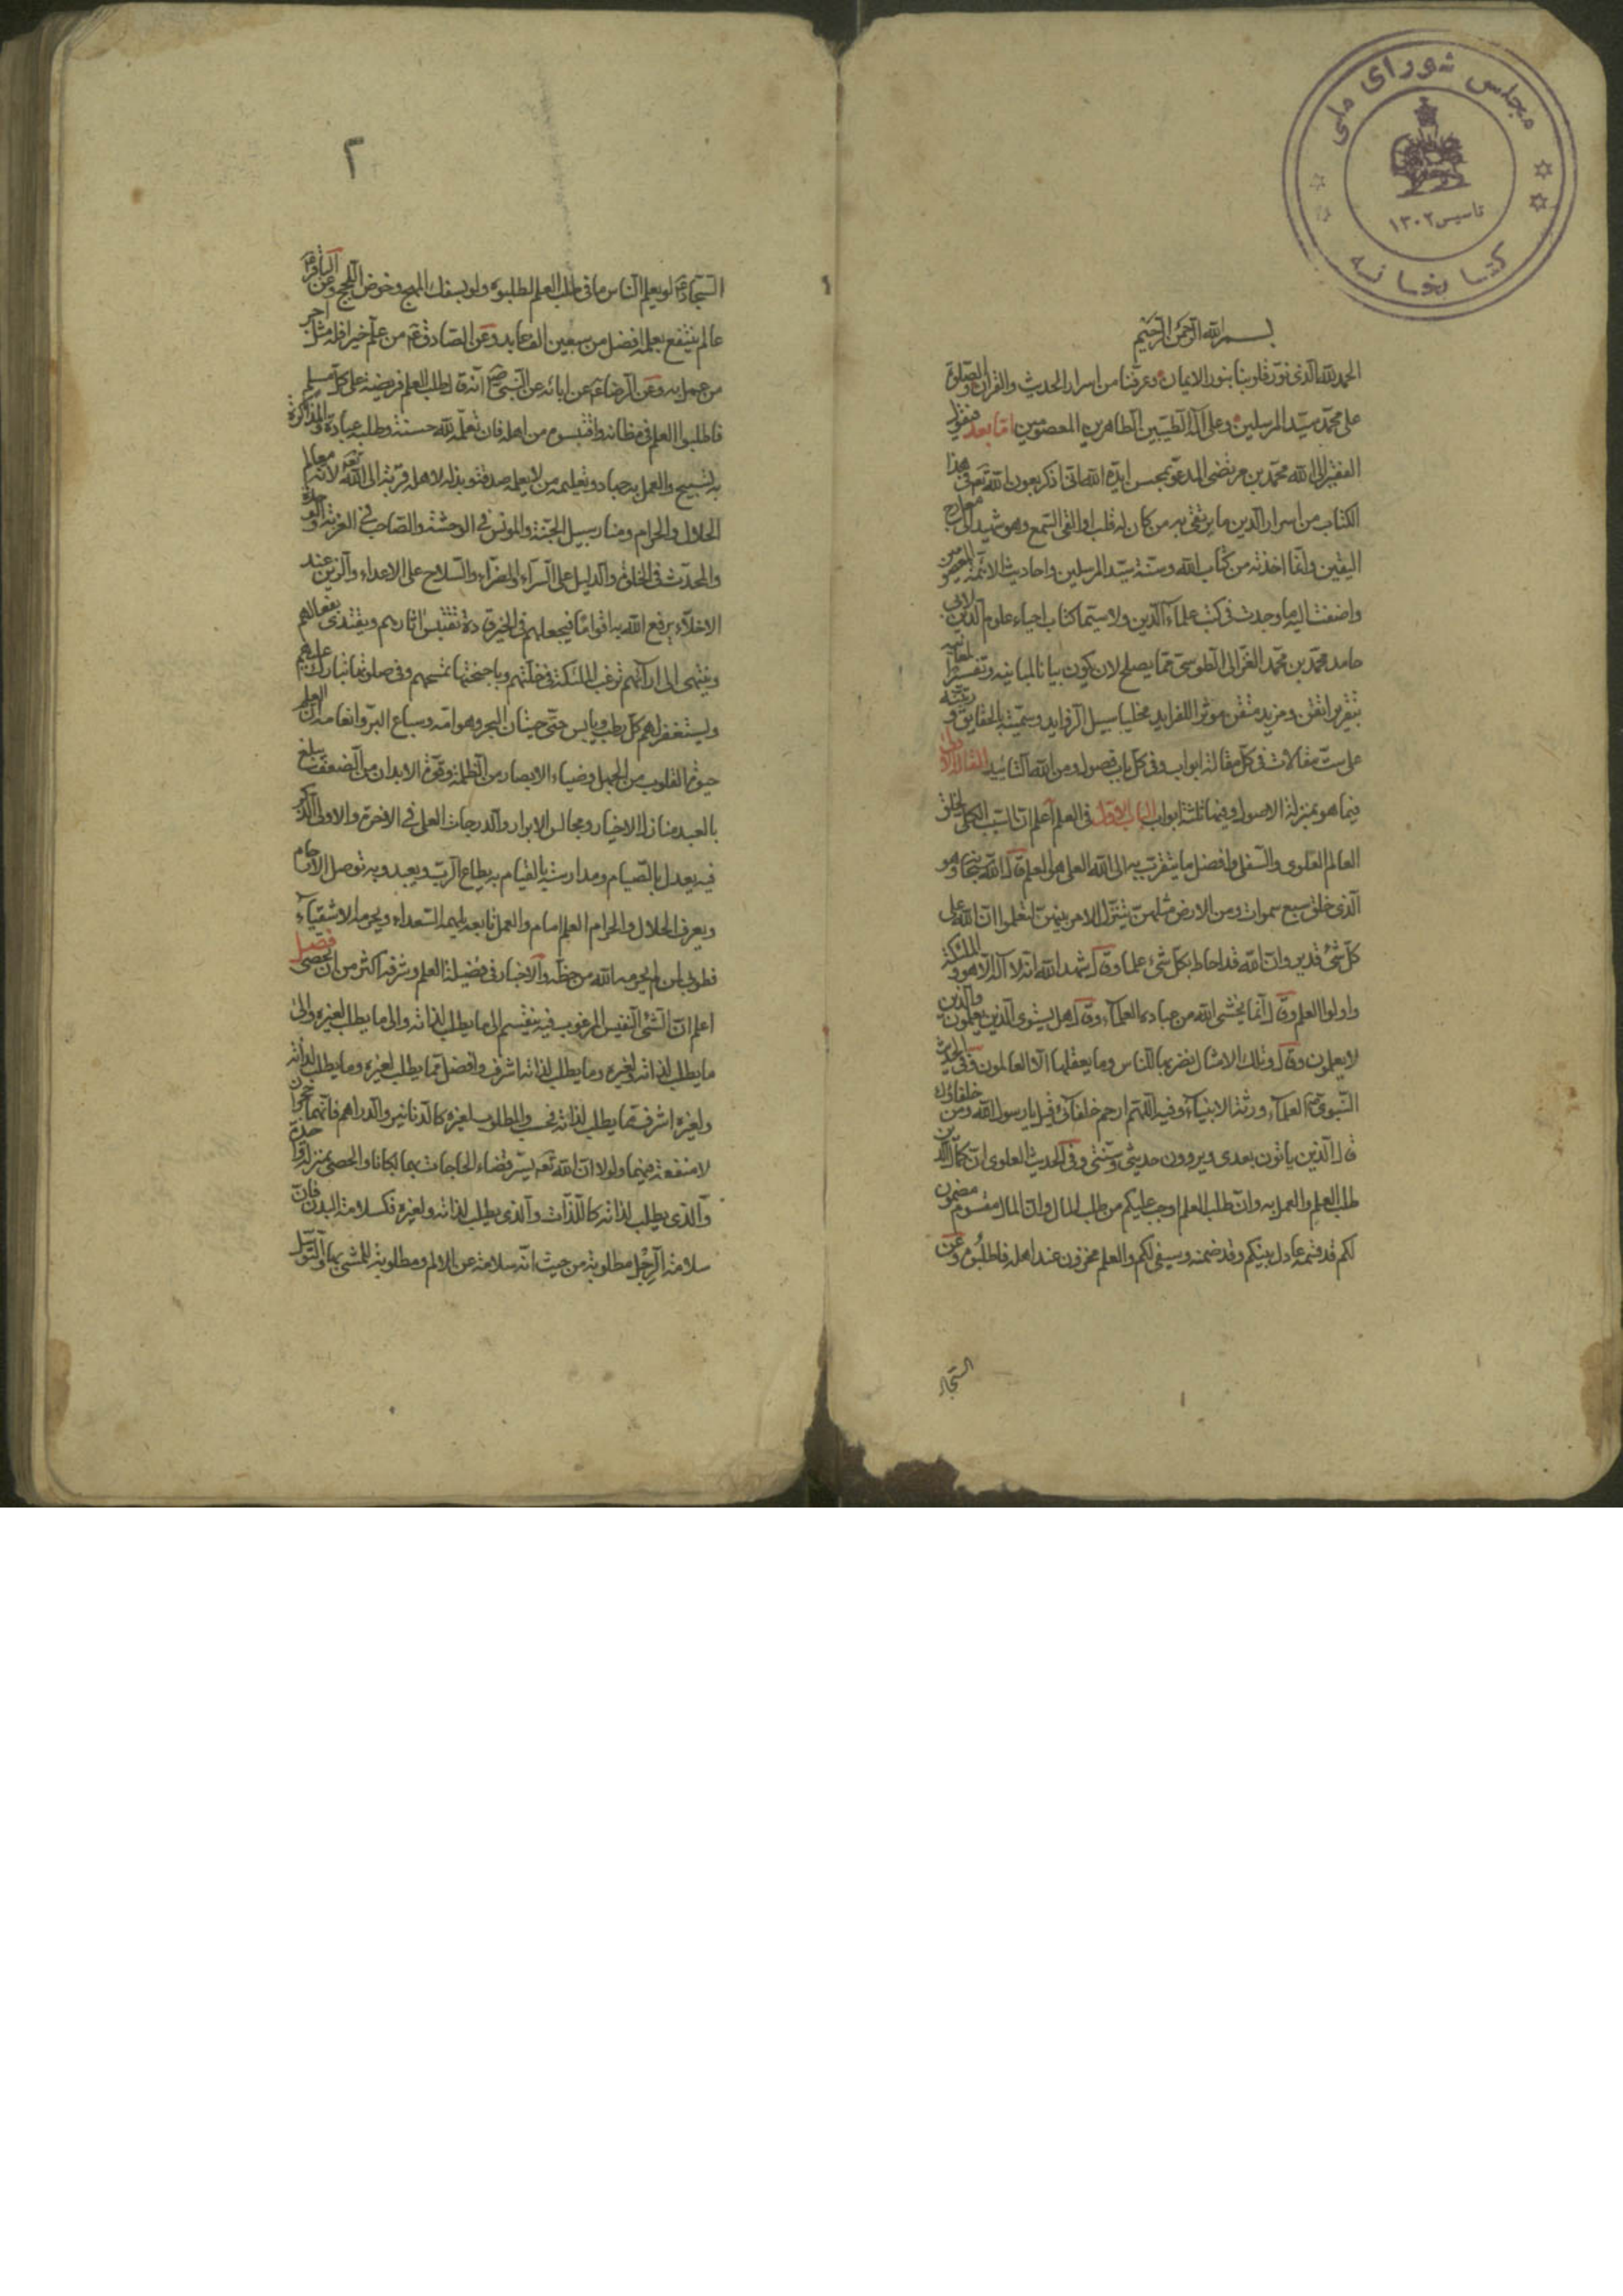 مجلس شورای ملی
تاسیس ۱۳۰۲
کتابخانه
بسم الله الرحمن الرحیم
الحمد لله الذی نور قلوبنا بنور الایمان وعرفنا من اسرار الحدیث والقران والصلوة
علی محمد سید المرسلین وعلی اله الطیبین الطاهرین المعصومین اما بعد فیقول
الفقیر الی الله محمد بن مرتضی المدعو بمحسن ایده الله انی اذکر بعون الله تعم فی هذا
الکتاب من اسرار الدین ما یرتقی به من کان له قلب او القی السمع وهو شهید الی معارج
الیقین وانما اخذته من کتاب الله وسنة سید المرسلین واحادیث الائمة المعصومین
واضفت الیه ما وجدت فی کتب علماء الدین ولاسیما کتاب احیاء علوم الدین لابی
حامد محمد بن محمد الغزالی الطوسی مما یصلح لان یکون بیانا لمبانیه وتفسیرا لمعانیه
بتقریر اتقن ومزید متقن موثرا للفراید مخلیا سبیل الزواید وسمیته بالحقایق ورتبته
علی ست مقالات فی کل مقالة ابواب وفی کل باب فصول ومن الله التائید المقالة الاولی
فیما هو بمنزلة الاصول وفیها ثلثة ابواب الباب الاول فی العلم اعلم ان السبب الکلی لخلق
العالم العلوی والسفلی وافضل ما یتقرب به الی الله العلی هو العلم قال الله سبحانه وهو
الذی خلق سبع سموات ومن الارض مثلهن یتنزل الامر بینهن لتعلموا ان الله علی
کل شیء قدیر وان الله قد احاط بکل شیء علما وقال شهد الله انه لا اله الا هو والملئکة
واولوا العلم وقال انما یخشی الله من عباده العلماء وقال هل یستوی الذین یعلمون والذین
لا یعلمون وقال وتلك الامثال نضربها للناس وما یعقلها الا العالمون وفی الحدیث
النبوی ص العلماء ورثة الانبیاء وفیه اللهم ارحم خلفائی قیل یا رسول الله ومن خلفاؤك
قال الذین یاتون بعدی ویروون حدیثی وسنتی وفی الحدیث العلوی ان کمال الدین
طلب العلم والعمل به وان طلب العلم اوجب علیکم من طلب المال وان المال مقسوم مضمون
لکم قد قسمه عادل بینکم وقد ضمنه وسیفی لکم والعلم مخزون عند اهله فاطلبوه وعن
السجاد
۱
۲
السجاد ع لو یعلم الناس ما فی طلب العلم لطلبوه ولو بسفك المهج وخوض اللجج وعن الباقر ع
عالم ینتفع بعلمه افضل من سبعین الف عابد وعن الصادق ع من علم خیرا فله مثل اجر
من عمل به وعن الرضا ع عن ابائه عن النبی ص انه قال طلب العلم فریضة علی کل مسلم
فاطلبوا العلم فی مظانه واقتبسوه من اهله فان تعلمه لله حسنة وطلبه عبادة والمذاکرة
به تسبیح والعمل به جهاد وتعلیمه من لا یعلمه صدقة وبذله لاهله قربة الی الله تعم لانه معالم
الحلال والحرام ومنار سبیل الجنة والمونس فی الوحشة والصاحب فی الغربة والوحدة
والمحدث فی الخلوة والدلیل علی السراء والضراء والسلاح علی الاعداء والزین عند
الاخلاء یرفع الله به اقواما فیجعلهم فی الخیر قادة تقتبس اثارهم ویقتدی بفعالهم
وینتهی الی ارائهم ترغب الملئکة فی خلتهم وباجنحتها تمسحهم وفی صلوتها تبارك علیهم
ویستغفر لهم کل رطب ویابس حتی حیتان البحر وهوامه وسباع البر وانعامه ان العلم
حیوة القلوب من الجهل وضیاء الابصار من الظلمة وقوة الابدان من الضعف یبلغ
بالعبد منازل الاخیار ومجالس الابرار والدرجات العلی فی الاخرة والاولی الذکر
فیه یعدل بالصیام ومدارسته بالقیام به یطاع الرب ویعبد وبه توصل الارحام
ویعرف الحلال والحرام العلم امام والعمل تابعه یلهمه السعداء ویحرمه الاشقیاء
فطوبی لمن لم یحرمه الله من حظه والاخبار فی فضیلة العلم وشرفه اکثر من ان تحصی فصل
اعلم ان الشیء النفیس المرغوب فیه ینقسم الی ما یطلب لذاته والی ما یطلب لغیره والی
ما یطلب لذاته ولغیره وما یطلب لذاته اشرف وافضل مما یطلب لغیره وما یطلب لذاته
ولغیره اشرف مما یطلب لذاته فحسب والمطلوب لغیره کالدنانیر والدراهم فانهما حجران
لا منفعة فیهما ولولا ان الله تعم یسر قضاء الحاجات بهما لکانا والحصی بمنزلة واحدة
والذی یطلب لذاته کاللذات والذی یطلب لذاته ولغیره فکسلامة البدن فان
سلامة الرجل مطلوبة من حیث انه سلامة عن الالم ومطلوبة للمشی بها والتوسل